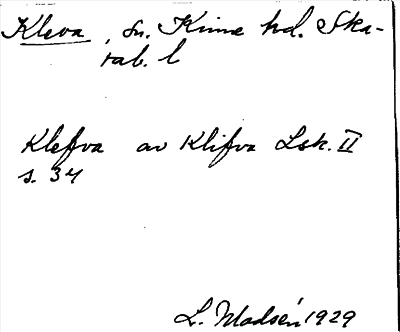 Kleva, sn. Kinne hd. Ska-
rab. l
Klefva av Klifva Lsk. II
s. 34
L. Modsén 1929